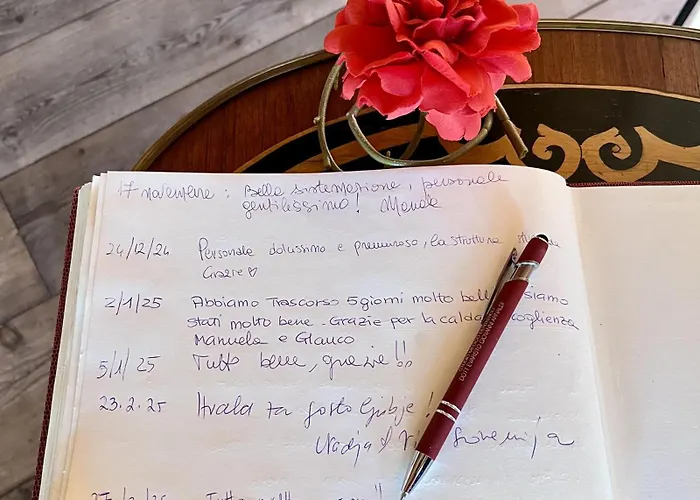 17 novembre : Bella sistemazione, personale
gentilissimo!
24/12/24 Personale dolcissimo e premuroso, la struttura
Grazie ♡
2/1/25 Abbiamo Trascorso 5 giorni molto siamo
stati molto bene. Grazie per la calda
Manuela e Glauco
5/1/25 Tutto bene, grazie!!
23.2.25 Hvala za gostoljubje!
Nadja Slovenija
Tutto